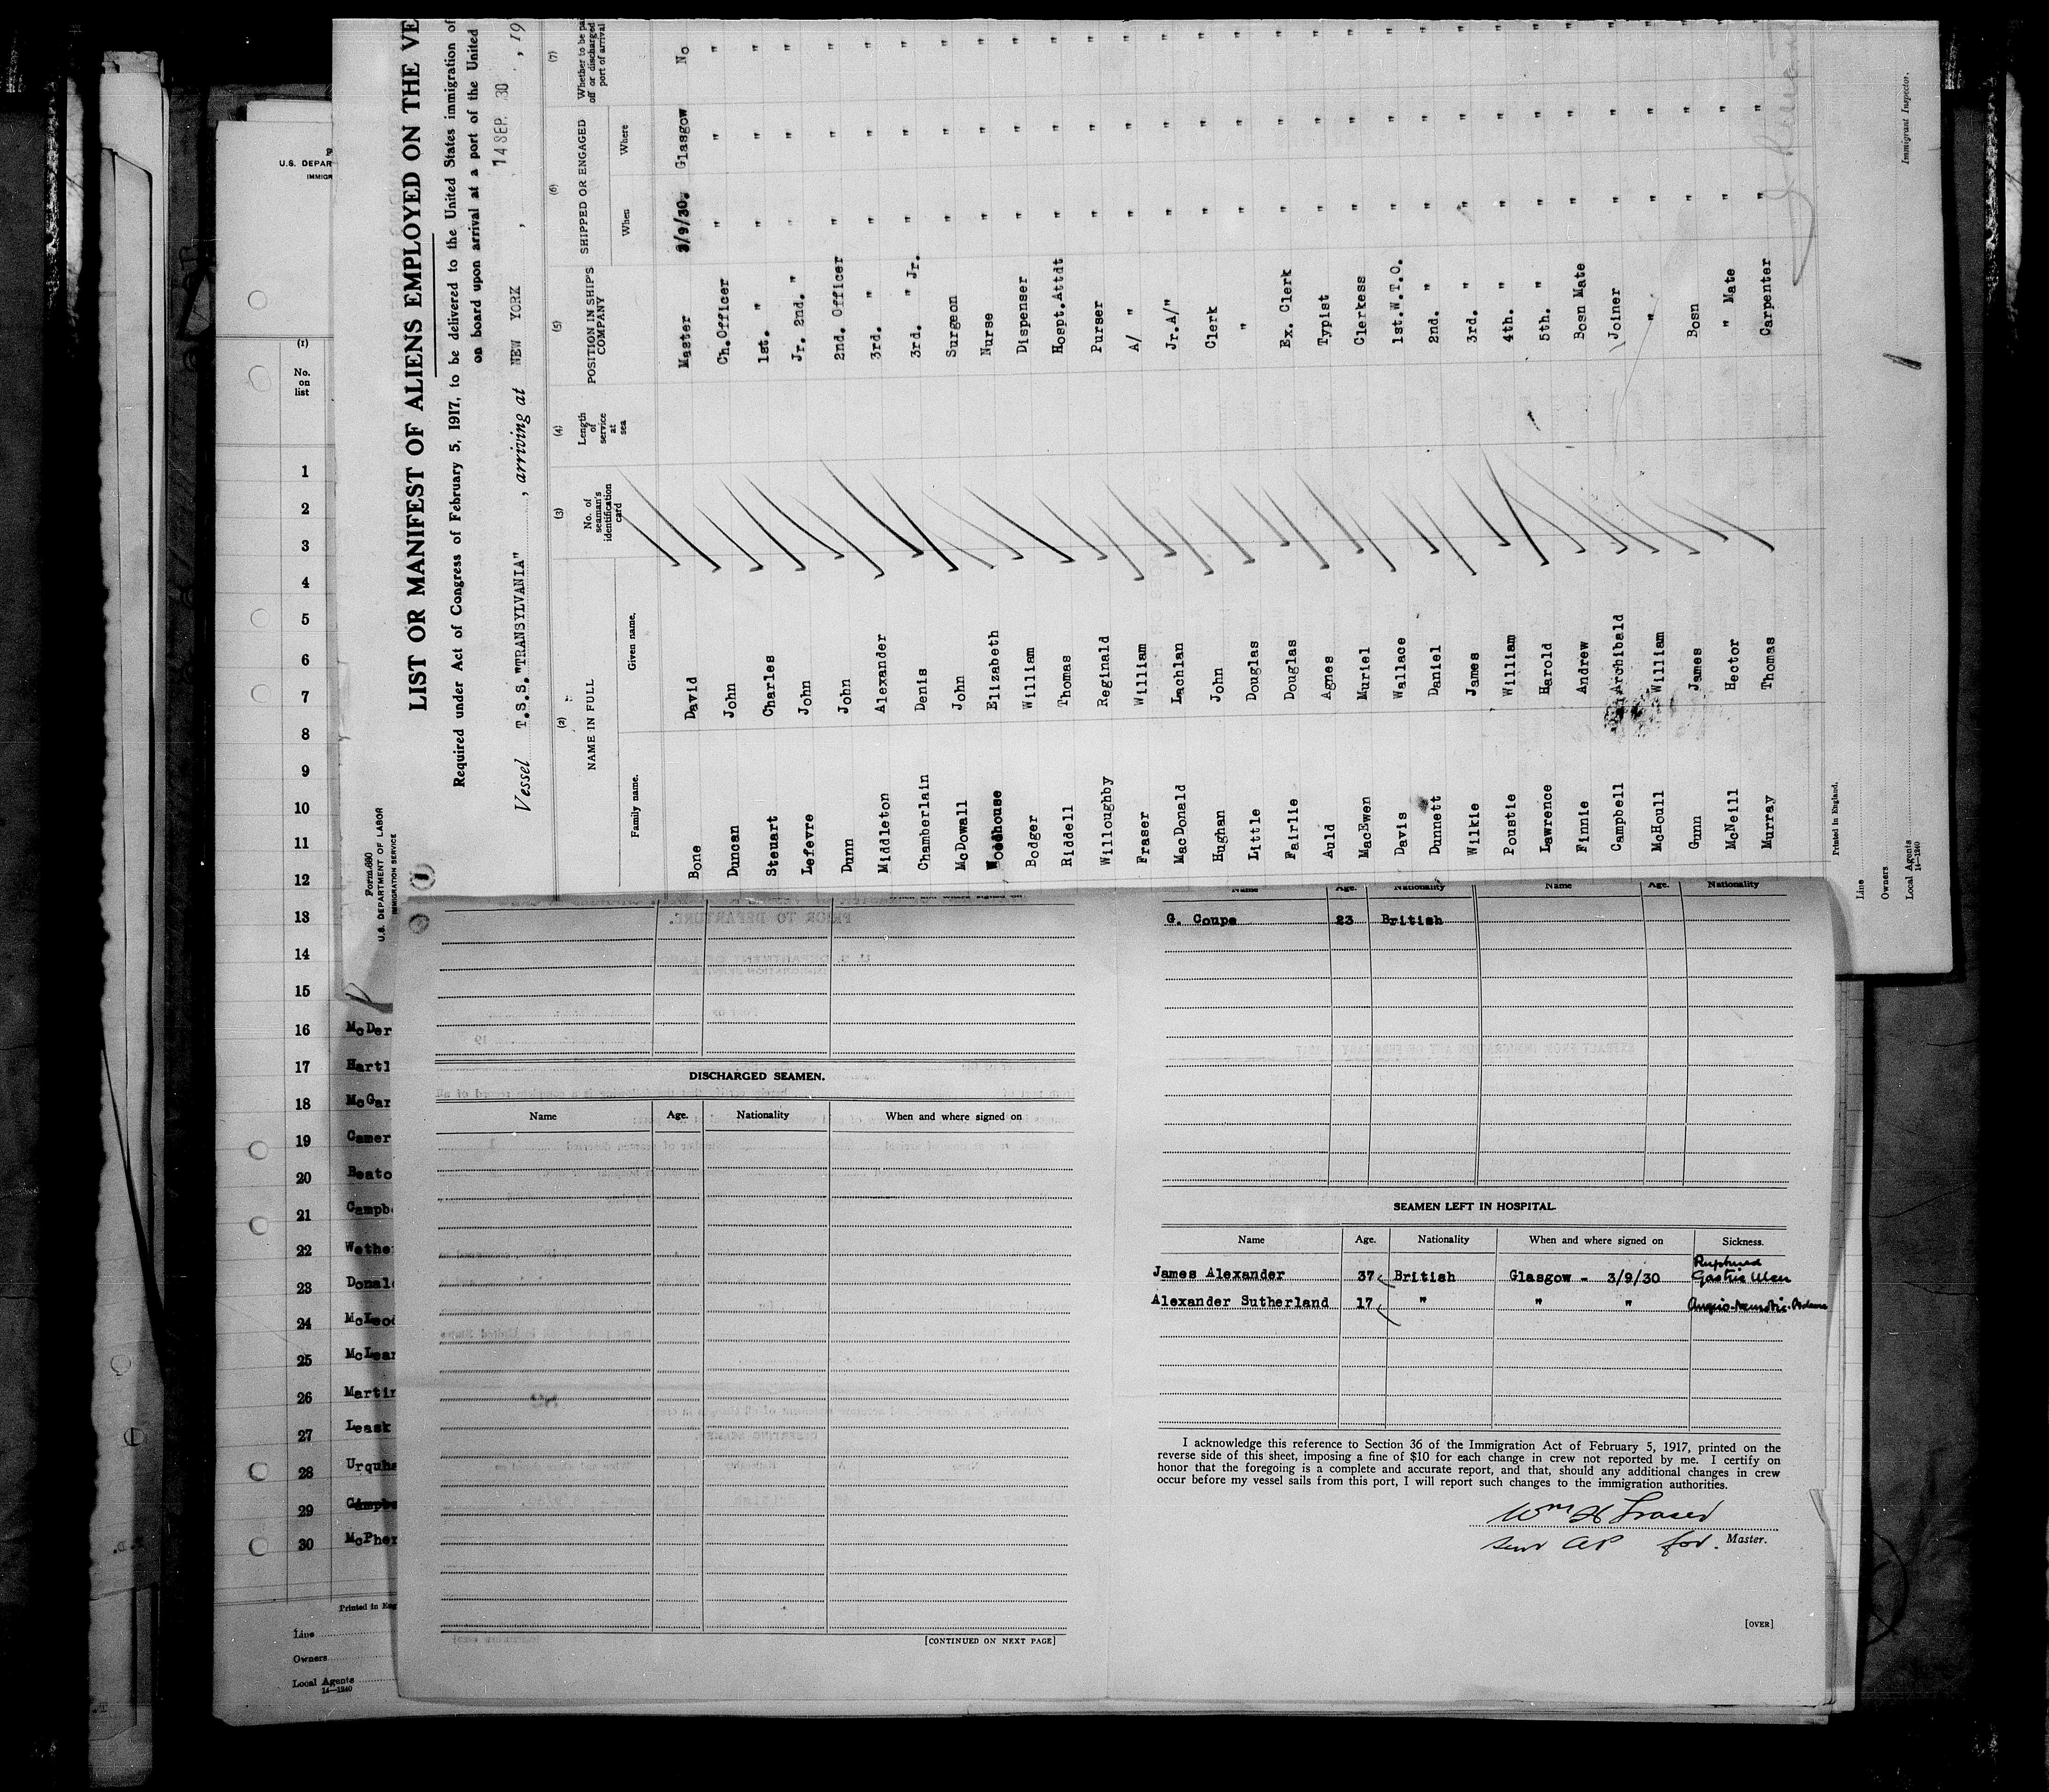 Form 680
U.S. DEPARTMENT OF LABOR
IMMIGRATION SERVICE
1
LIST OR MANIFEST OF ALIENS EMPLOYED ON THE VE
Required under Act of Congress of February 5, 1917, to be delivered to the United States immigration of
on board upon arrival at a port of the United
Vessel T.S.S."TRANSYLVANIA", arriving at NEW YORK, 14 SEP. 30, 19
(2) (3) (4) (5) (6) (7)
NAME IN FULL
No. of seaman's identification card
Length of service at sea
POSITION IN SHIP'S COMPANY
SHIPPED OR ENGAGED
Whether to be pa
off or discharged
port of arrival
Family name. Given name. When Where
Bone David Master 3/9/30. Glasgow No
Duncan John Ch.Officer " " "
Steuart Charles 1st. " " " "
Lefevre John Jr. 2nd. " " " "
Dunn John 2nd. Officer " " "
Middleton Alexander 3rd. " " " "
Chamberlain Denis 3rd. " Jr. " " "
McDowall John Surgeon " " "
Woodhouse Elizabeth Nurse " " "
Bodger William Dispenser " " "
Riddell Thomas Hospt.Attdt " " "
Willoughby Reginald Purser " " "
Fraser William A/ " " " "
MacDonald Lachlan Jr.A/" " " "
Hughan John Clerk " " "
Little Douglas " " " "
Fairlie Douglas Ex. Clerk " " "
Auld Agnes Typist " " "
MacEwen Muriel Clerkess " " "
Davis Wallace 1st.W.T.O. " " "
Dunnett Daniel 2nd. " " " "
Wilkie James 3rd. " " " "
Poustie William 4th. " " " "
Lawrence Harold 5th. " " " "
Finnie Andrew Bosn Mate " " "
Campbell Archibald Joiner " " "
McHoull William " " " "
Gunn James Bosn " " "
McNeill Hector " Mate " " "
Murray Thomas Carpenter " " "
Printed in England.
Line
Owners
Local Agents
14—1240
Immigrant Inspector.
U.S. DEPAR
IMMIGR
(1)
No.
on
list
1
2
3
4
5
6
7
8
9
10
11
12
13
14
15
16 McDer
17 Hartl
18 McGar
19 Camer
20 Beato
21 Campb
22 Wethe
23 Donal
24 McLeo
25 McLear
26 Martin
27 Leask
28 Urquha
29 Campbe
30 McPher
Printed in Eng
Line
Owners
Local Agents
14—1240
DISCHARGED SEAMEN.
Name Age. Nationality When and where signed on
[CONTINUED ON NEXT PAGE]
Name Age. Nationality Name Age. Nationality
G. Coupe 23 British
SEAMEN LEFT IN HOSPITAL.
Name Age. Nationality When and where signed on Sickness.
James Alexander 37 British Glasgow - 3/9/30 Ruptured Gastric Ulcer
Alexander Sutherland 17 " " "
I acknowledge this reference to Section 36 of the Immigration Act of February 5, 1917, printed on the
reverse side of this sheet, imposing a fine of $10 for each change in crew not reported by me. I certify on
honor that the foregoing is a complete and accurate report, and that, should any additional changes in crew
occur before my vessel sails from this port, I will report such changes to the immigration authorities.
Wm H Fraser
for. Master.
[OVER]